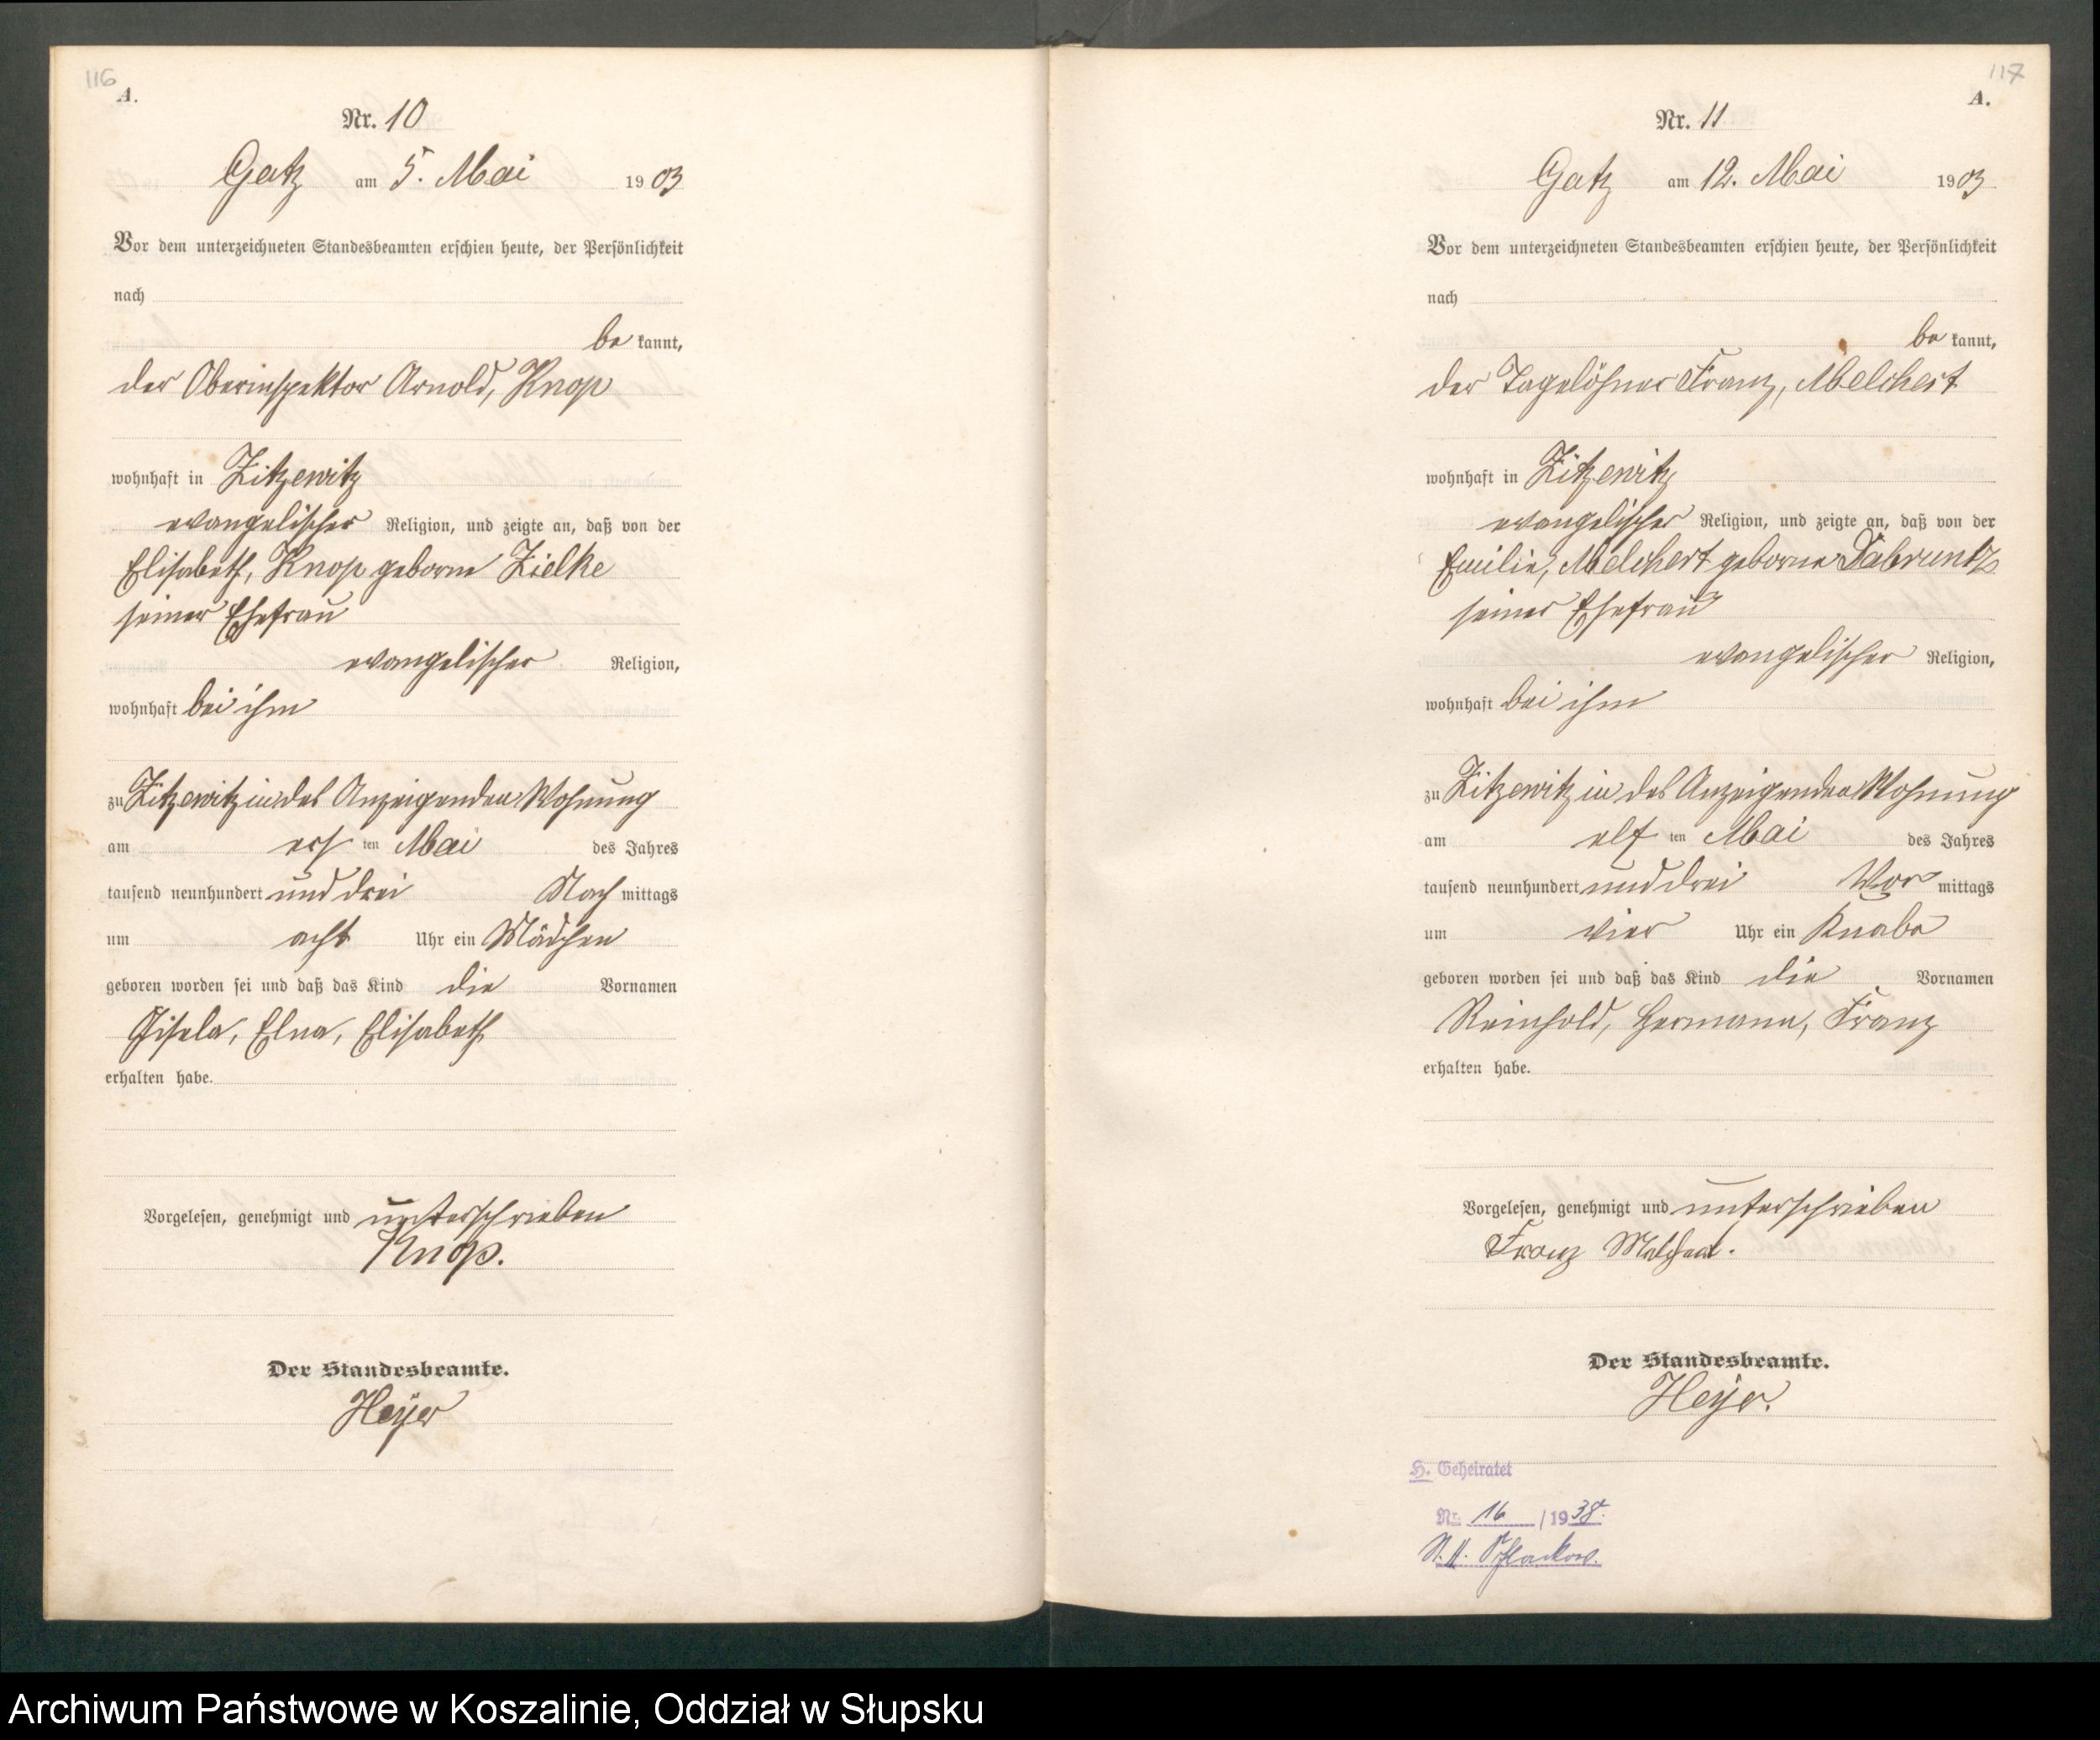 116
A.
Nr. 10
Gatz am 5. Mai 1903
Vor dem unterzeichneten Standesbeamten erschien heute, der Persönlichkeit
nach
be kannt,
der Oberinspektor Arnold, Knop
wohnhaft in Zitzewitz
evangelischer Religion, und zeigte an, daß von der
Elisabeth, Knop geborne Zielke
seiner Ehefrau
evangelischer Religion,
wohnhaft bei ihm
zu Zitzewitz in des Anzeigenden Wohnung
am ersten Mai des Jahres
tausend neunhundert und drei Nachmittags
um acht Uhr ein Mädchen
geboren worden sei und daß das Kind die Vornamen
Gisela, Elna, Elisabeth
erhalten habe.
Vorgelesen, genehmigt und unterschrieben
Knop.
Der Standesbeamte.
Heyer
117
A.
Nr. 11
Gatz am 12. Mai 1903
Vor dem unterzeichneten Standesbeamten erschien heute, der Persönlichkeit
nach
be kannt,
der Tagelöhner Franz, Melchert
wohnhaft in Zitzewitz
evangelischer Religion, und zeigte an, daß von der
Emilie, Melchert geborne
seiner Ehefrau
evangelischer Religion,
wohnhaft bei ihm
zu Zitzewitz in des Anzeigenden Wohnung
am elften Mai des Jahres
tausend neunhundert und drei Vormittags
um vier Uhr ein Knabe
geboren worden sei und daß das Kind die Vornamen
Reinhold, Hermann, Franz
erhalten habe.
Vorgelesen, genehmigt und unterschrieben
Franz Melchert.
Der Standesbeamte.
Heyer.
H. Geheiratet
Nr. 16 / 1938.
Archiwum Państwowe w Koszalinie, Oddział w Słupsku